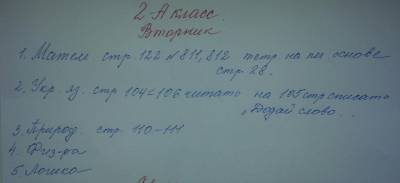 2-А класс.
Вторник
1. Матем стр. 122 № 811, 812 тетр на печ основе
стр. 28.
2. Укр. яз. стр 104-106 читать на 105 стр списать
„Додай слово...
3. Природ. стр. 110-111
4. Физ-ра
5. Логика